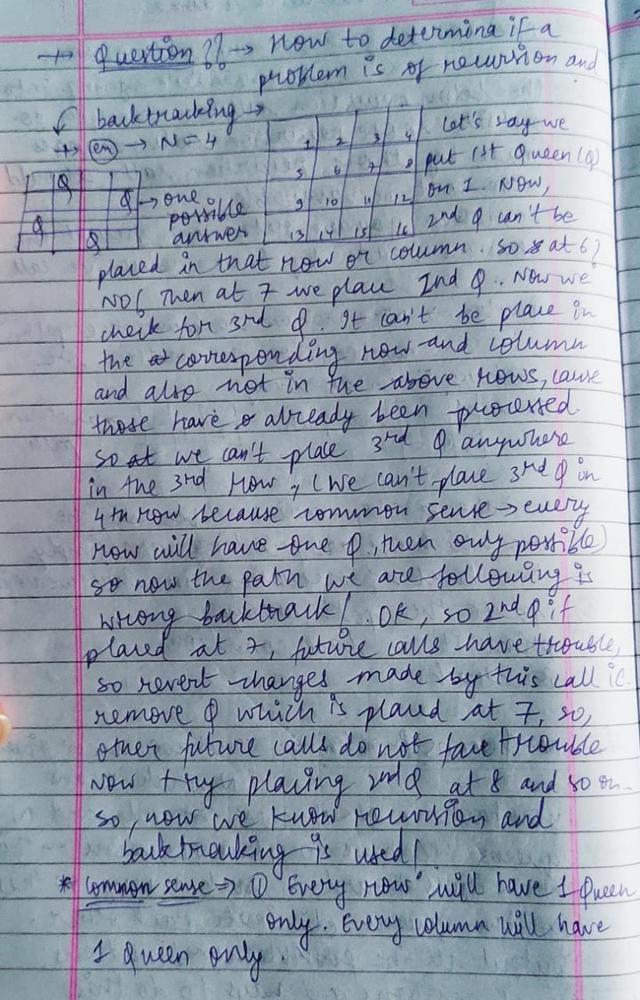 → Question ?? → How to determina if a
problem is of recursion and
backtracking →
→ (en) → N = 4
Q
Q → one
possible
answer
Q
Q
1 2 3 4
5 6 7 8
9 10 11 12
13 14 15 16
Let's say we
put 1st Queen (Q)
on 1. Now,
2nd Q can't be
placed in that row or column. So at 6?
NO! Then at 7 we place 2nd Q. Now we
check for 3rd Q. It can't be place in
the corresponding row and column
and also not in the above rows, cause
those have already been processed.
So we can't place 3rd Q anywhere
in the 3rd row, (We can't place 3rd Q in
4th row because common sense → every
row will have one Q, then only possible)
so now the path we are following is
wrong backtrack! OK, so 2nd Q if
placed at 7, future calls have trouble,
so revert changes made by this call ie.
remove Q which is placed at 7, so,
other future calls do not face trouble
Now try placing 2nd Q at 8 and so on.
so, now we know recursion and
backtracking is used!
* Common sense ⇒ ① Every row will have 1 Queen
only. Every column will have
1 Queen only.